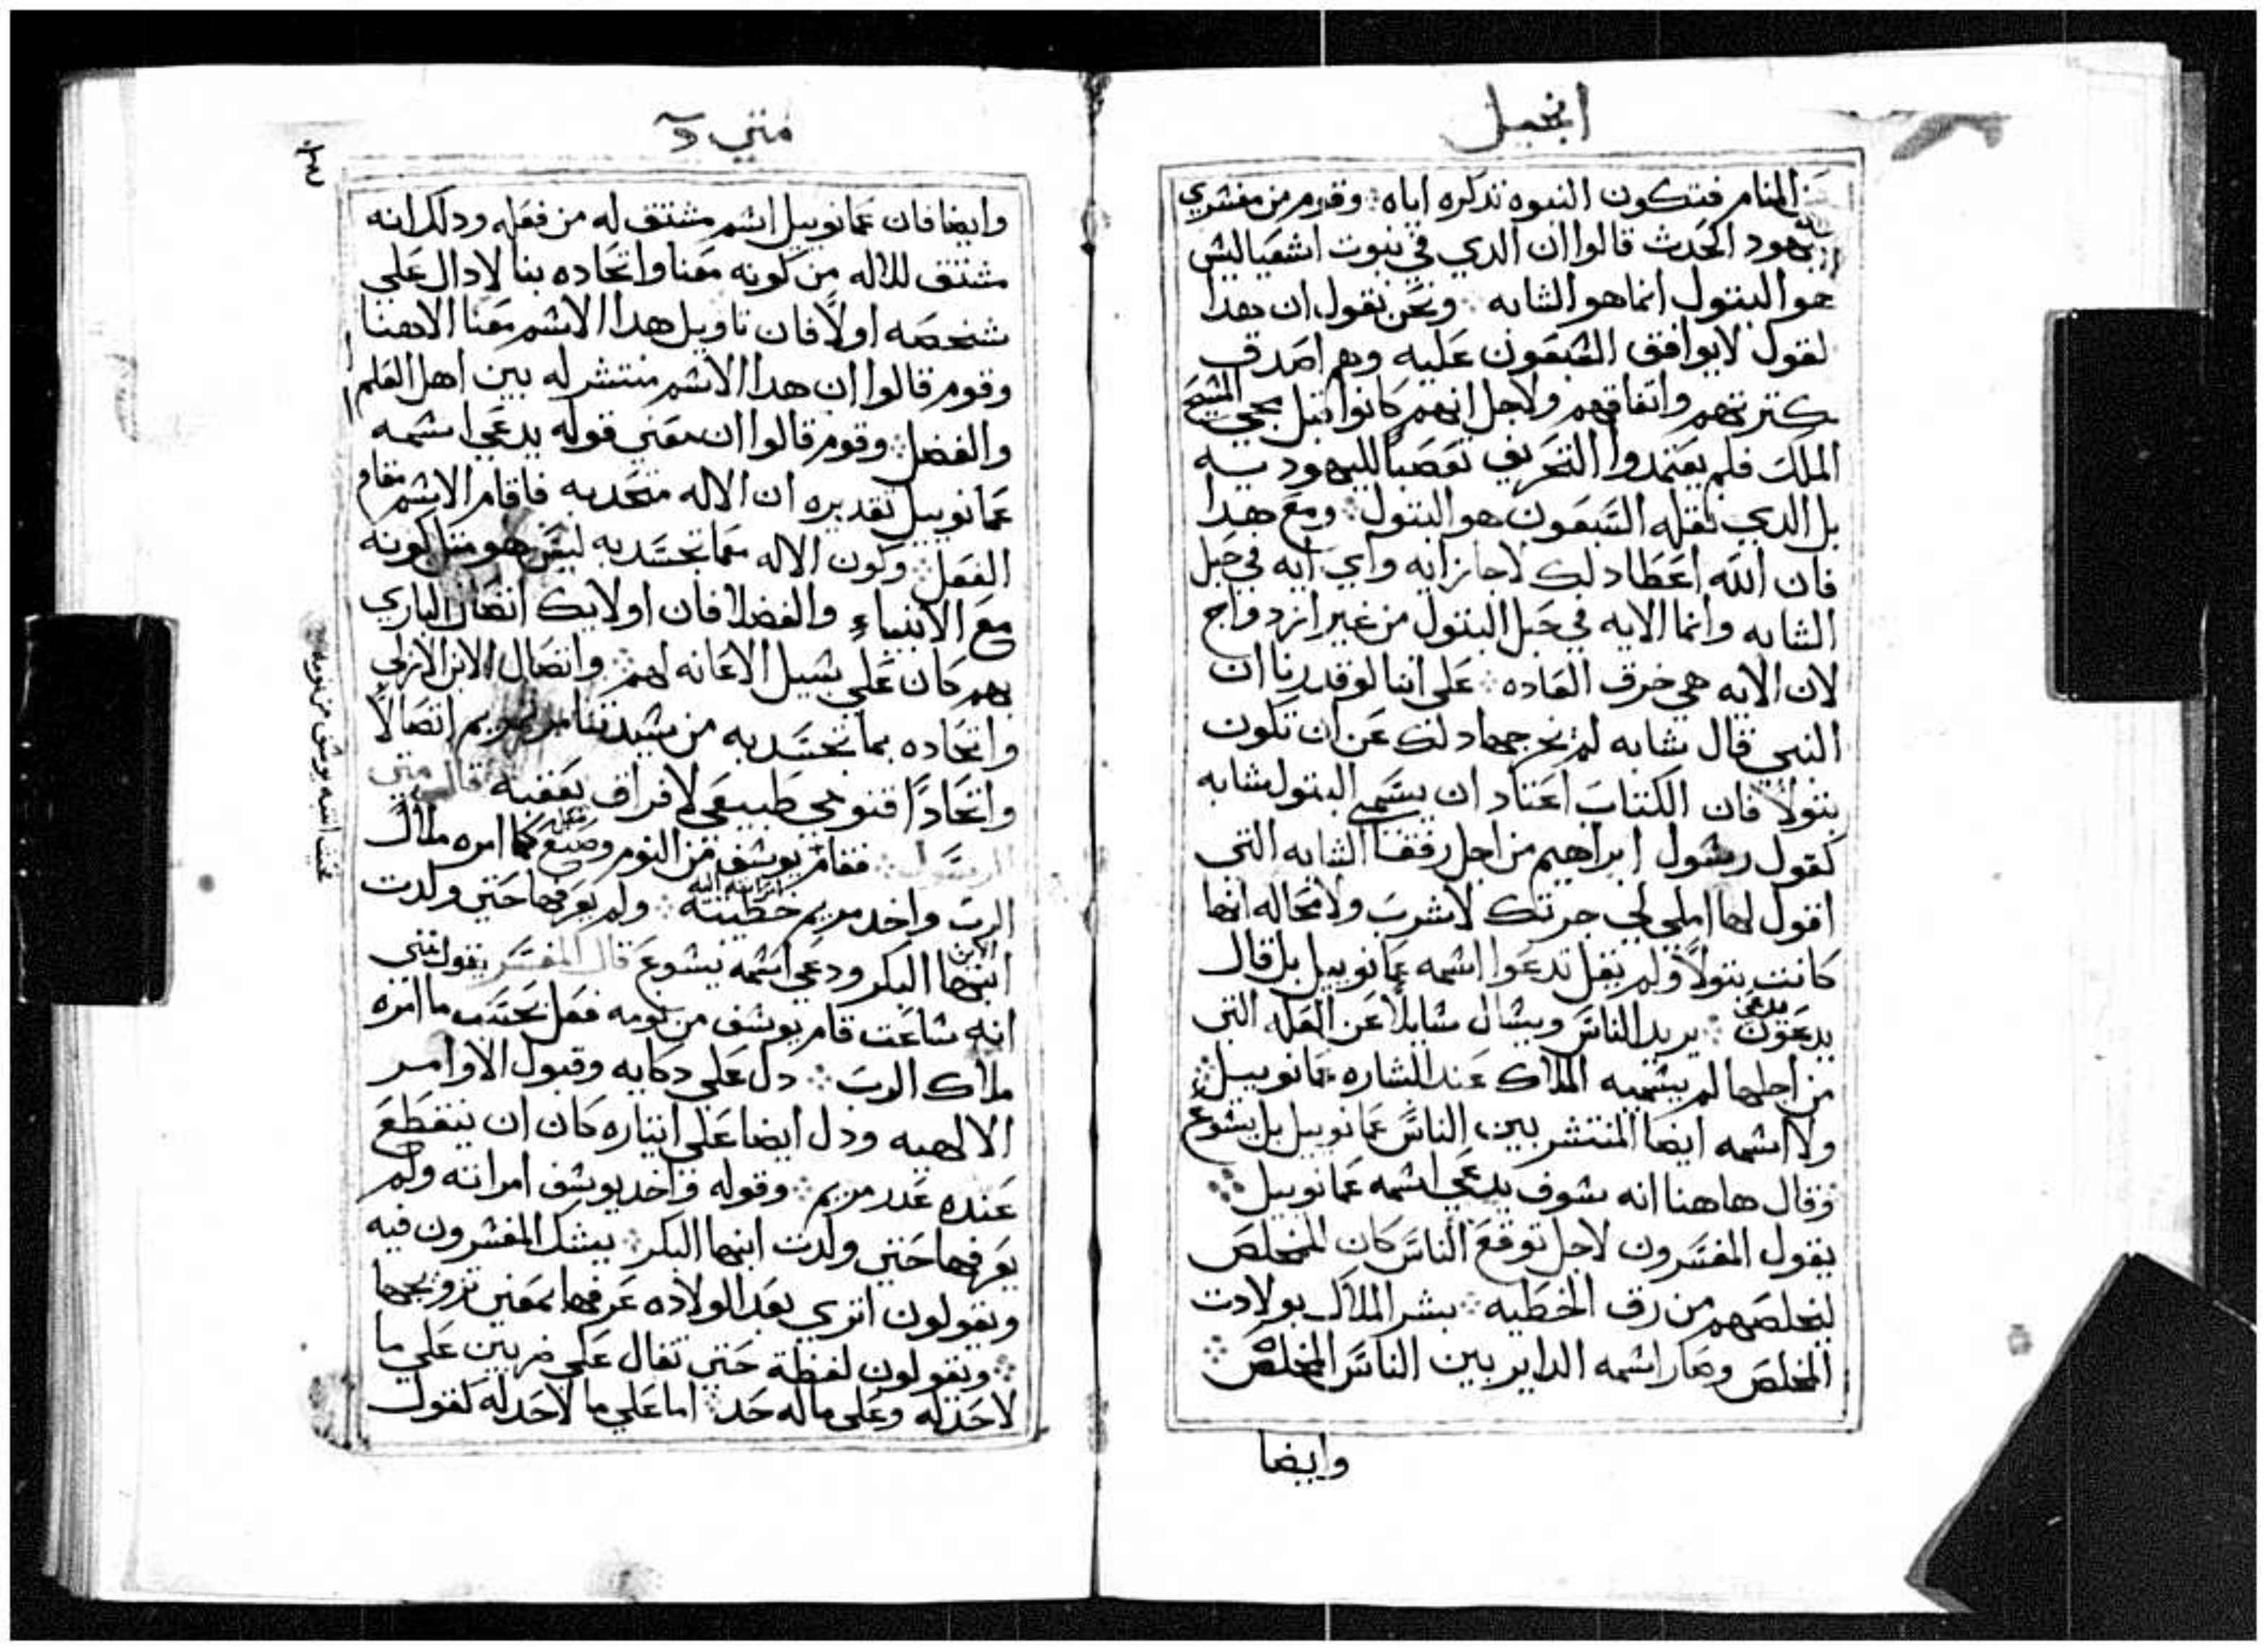 انجيل
المنام فتكون النبوه تذكره اياه ܀ وقوم من مفسري
يهود الحدث قالوا ان الدي في نبوت اشعيا ليس
هو البتول انما هو الشابه ܀ ونحن نقول ان هدا
لقول لا يوافق السبعون عليه وهم اصدق
كترتهم واتفاقهم ولاجل انهم كانوا قبل مجي المسيح
الملك فلم يعتمدوا التحريف تعصبا لليهوديه
بل الدي نقله السبعون هو البتول ܀ ومع هدا
فان الله اعطا دلك لاجاز ايه واي ايه في حبل
الشابه وانما الايه في حبل البتول من غير ازدواج
لان الايه هي خرق العاده ܀ علي اننا لو قدرنا ان
النبي قال شابه لم يخرجها دلك عن ان تكون
بتولا فان الكتاب اعتاد ان يسمي البتول شابه
كقول رسول ابراهيم من اجل رفقا الشابه التي
اقول لها املي لي جرتك لاشرب ولا محاله انها
كانت بتولاً ولم يقل تدعوا اسمه عمانوييل بل قال
يدعون يدعي ܀ يريد الناس ويسال سايلاً عن العله التي
من اجلها لم يسميه الملاك عند البشاره عمانوييل ܀
ولا اسمه ايضا المنتشر بين الناس عمانوييل بل يسوع
وقال هاهنا انه سوف يدعي اسمه عمانوييل ܀
يقول المفسرون لاجل توقع الناس كان للمخلص
ليخلصهم من رق الخطيه ܀ بشر الملاك بولادت
المخلص وصار اسمه الداير بين الناس المخلص ܀
وايضا
متي
وايضا فان عمانوييل اسم مشتق له من فعله ودلك انه
مشتق للاله من كونه معنا واتحاده بنا لا دال علي
شخصه اولاً فان تاويل هدا الاسم معنا الاهنا
وقوم قالوا ان هدا الاسم منتشر له بين اهل العلم
والفضل ܀ وقوم قالوا ان معني قوله يدعي اسمه
عمانوييل تقديره ان الاله متحد به فاقام الاسم مقام
الفعل ܀ وكون الاله مما تجسد به ليس هو مثل كونه
مع الانبياءِ والفضلا فان اولايك اتصال الباري
بهم كان علي سبيل الاعانه لهم ܀ واتصال الابن الازلي
واتحاده بما تجسد به من سيدتنا مرتمريم اتصالاً
واتحاداً قنومي طبيعي لا فراق يعقبه قال متي
الرسول ܀ فقام يوسف من النوم وصنع كما امره ملاك
الرب واخد مريم خطيبته ܀ ولم يعرفها حتي ولدت
ابنها البكر ودعي اسمه يسوع قال المفسر يقول متي
انه ساعت قام يوسف من نومه فعل بحسب ما امره
ملاك الرب ܀ دل علي دكايه وقبول الاوامر
الالهيه ودل ايضا علي ايتاره كان ان ينقطع
عنده عدر مريم ܀ وقوله واخد يوسف امراته ولم
يعرفها حتي ولدت ابنها البكر ܀ يشك المفسرون فيه
ويقولون اتري بعد الولاده عرفها بمعني تزويجها
܀ ويقولون لفظة حتي تقال علي ضربين علي ما
لا حد له وعلي ما له حد ܀ اما علي ما لا حد له كقول